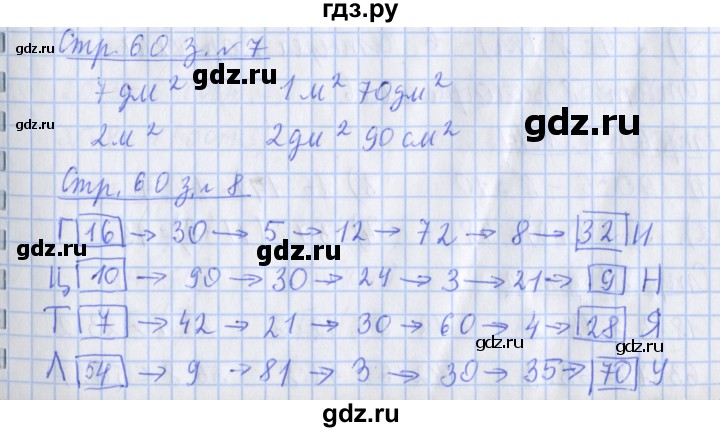 гдз.ру
Стр. 60 з. № 7
gdz.ru
7 дм² 1 м² 70 дм²
gdz.ru gdz.ru
2 м² 2 дм² 90 см²
gdz.ru
Стр. 60 з. № 8
Г 16 → 30 → 5 → 12 → 72 → 8 → 32 И
gdz.ru gdz.ru
Ц 10 → 90 → 30 → 24 → 3 → 21 → 9 Н
Т 7 → 42 → 21 → 30 → 60 → 4 → 28 Я
gdz.ru gdz.ru
Л 54 → 9 → 81 → 3 → 30 → 35 → 70 У
gdz.ru gdz.ru